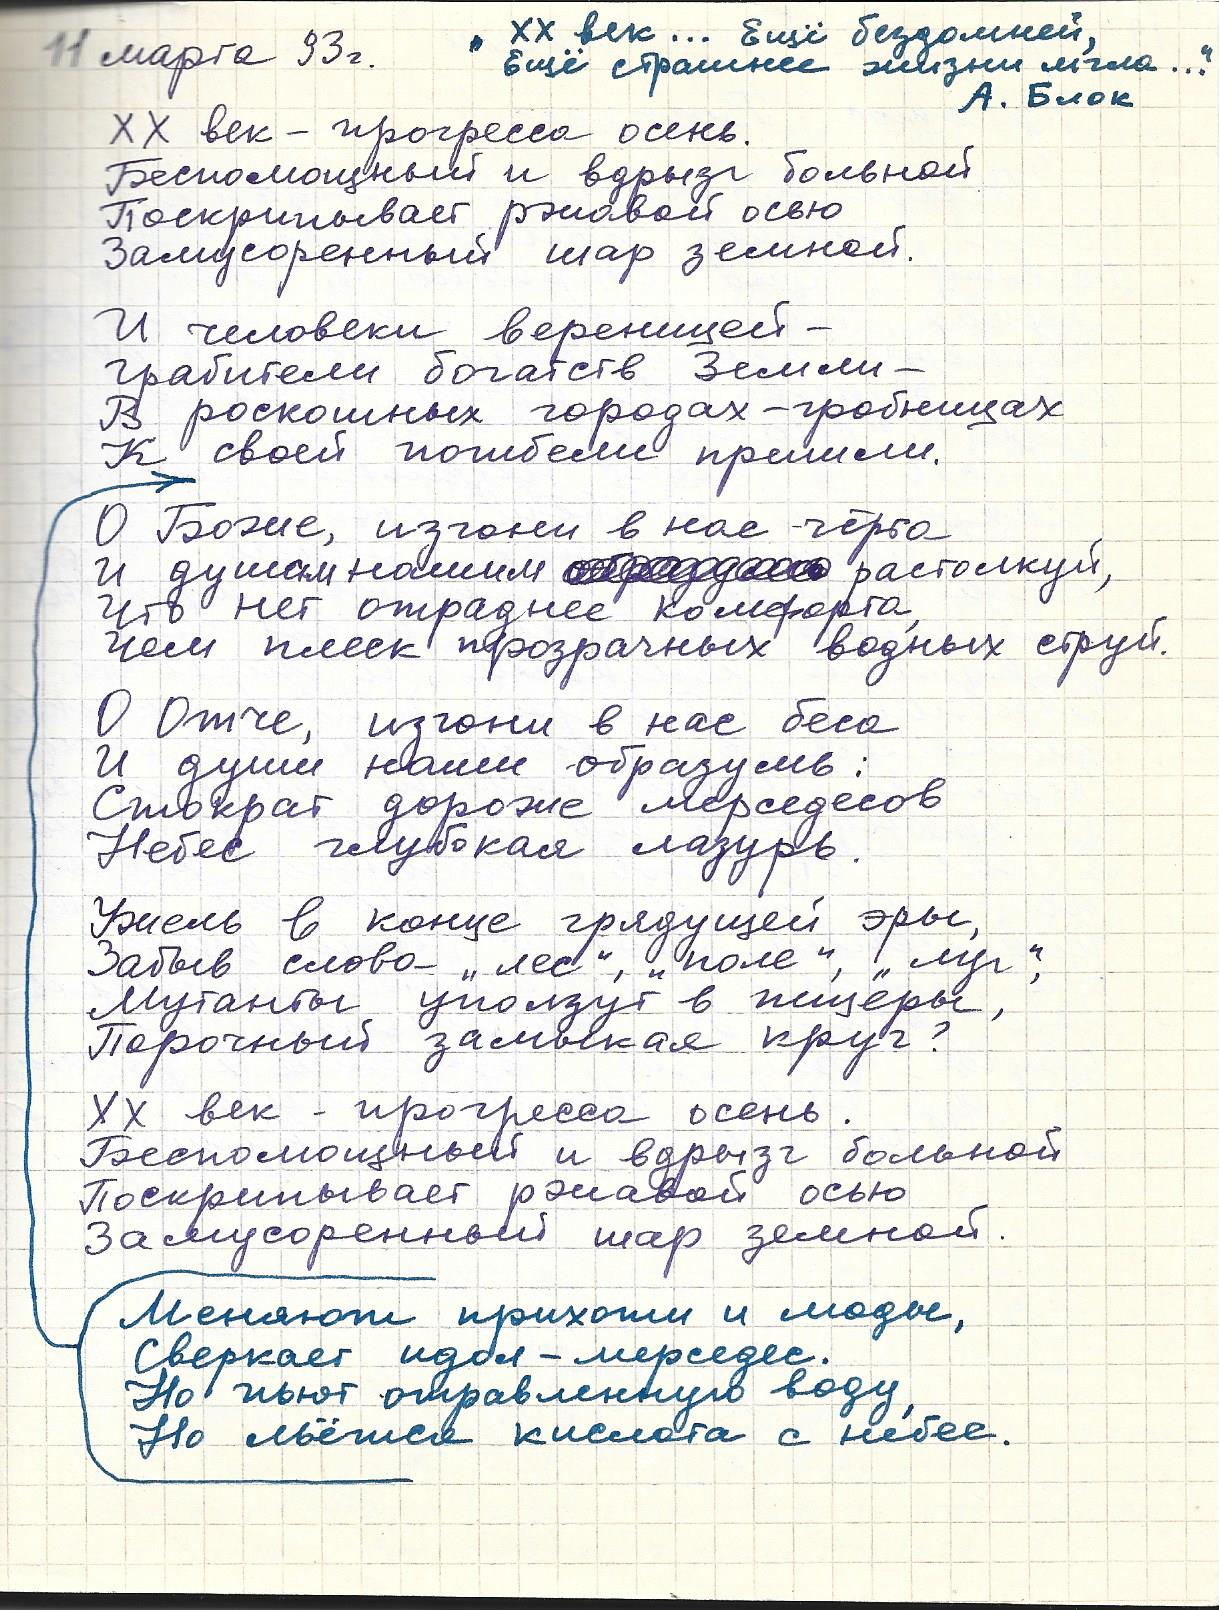 11 марта 93г.
„XX век... Ещё бездомней,
Ещё страшнее жизни мгла..."
А. Блок
XX век – прогресса осень.
Беспомощный и вдрызг больной
Поскрипывает ржавой осью
Замусоренный шар земной.
И человеки вереницей –
Грабители богатств Земли –
В роскошных городах-гробницах
К своей погибели пришли.
О Боже, изгони в нас чёрта
И душам нашим растолкуй,
Что нет отраднее комфорта,
Чем плеск прозрачных водных струй.
О Отче, изгони в нас беса
И души наши образумь:
Стократ дороже мерседесов
Небес глубокая лазурь.
Ужель в конце грядущей эры,
Забыв слова „лес", „поле", „луг",
Мутанты уползут в пещеры,
Порочный замыкая круг?
XX век - прогресса осень.
Беспомощный и вдрызг больной
Поскрипывает ржавой осью
Замусоренный шар земной.
Меняют прихоти и моды,
Сверкает идол-мерседес.
Но пьют отравленную воду,
Но льётся кислота с небес.